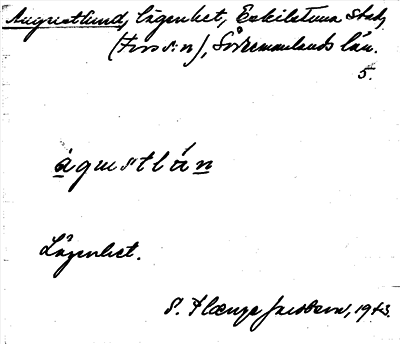 Augustlund, lägenhet, Eskilstuna stad,
(Fors s:n), Södermanlands län.
5.
àgustlán
Lägenhet.
S. 1943.